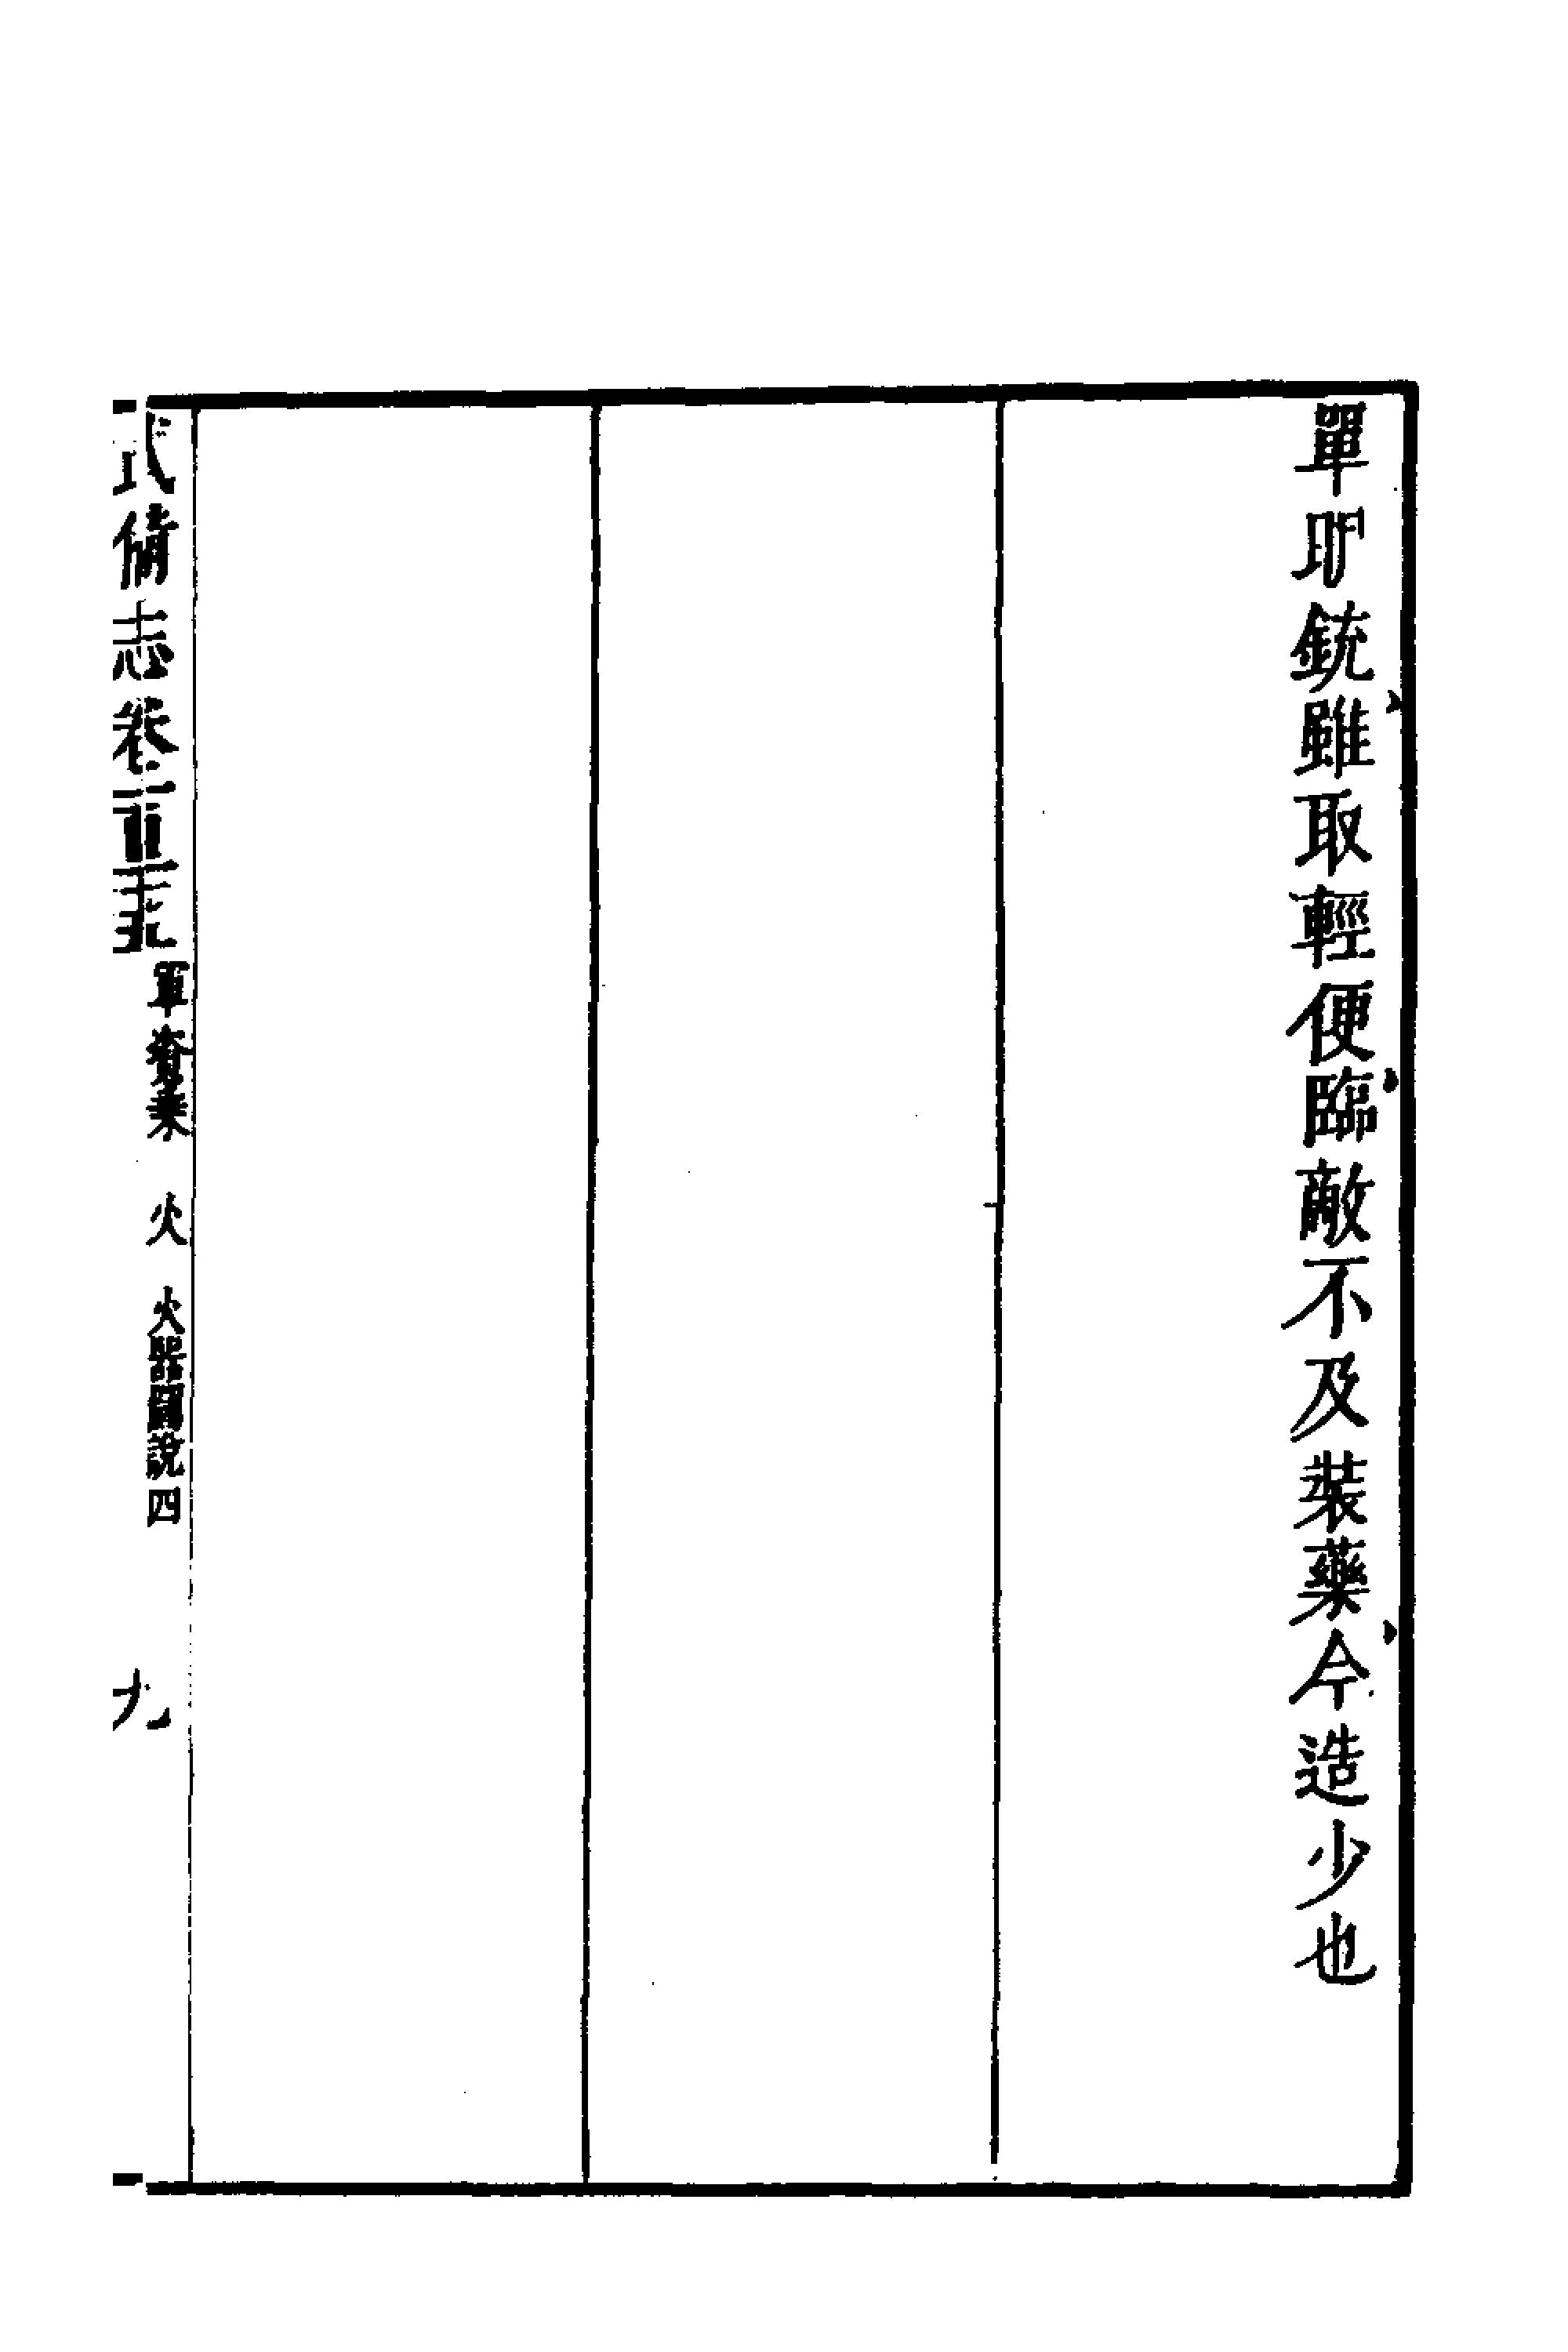 單銃雖取輕便臨敵不及裝藥今造少也
武備志卷一百二十五 軍資乘 火 火器圖說四 九